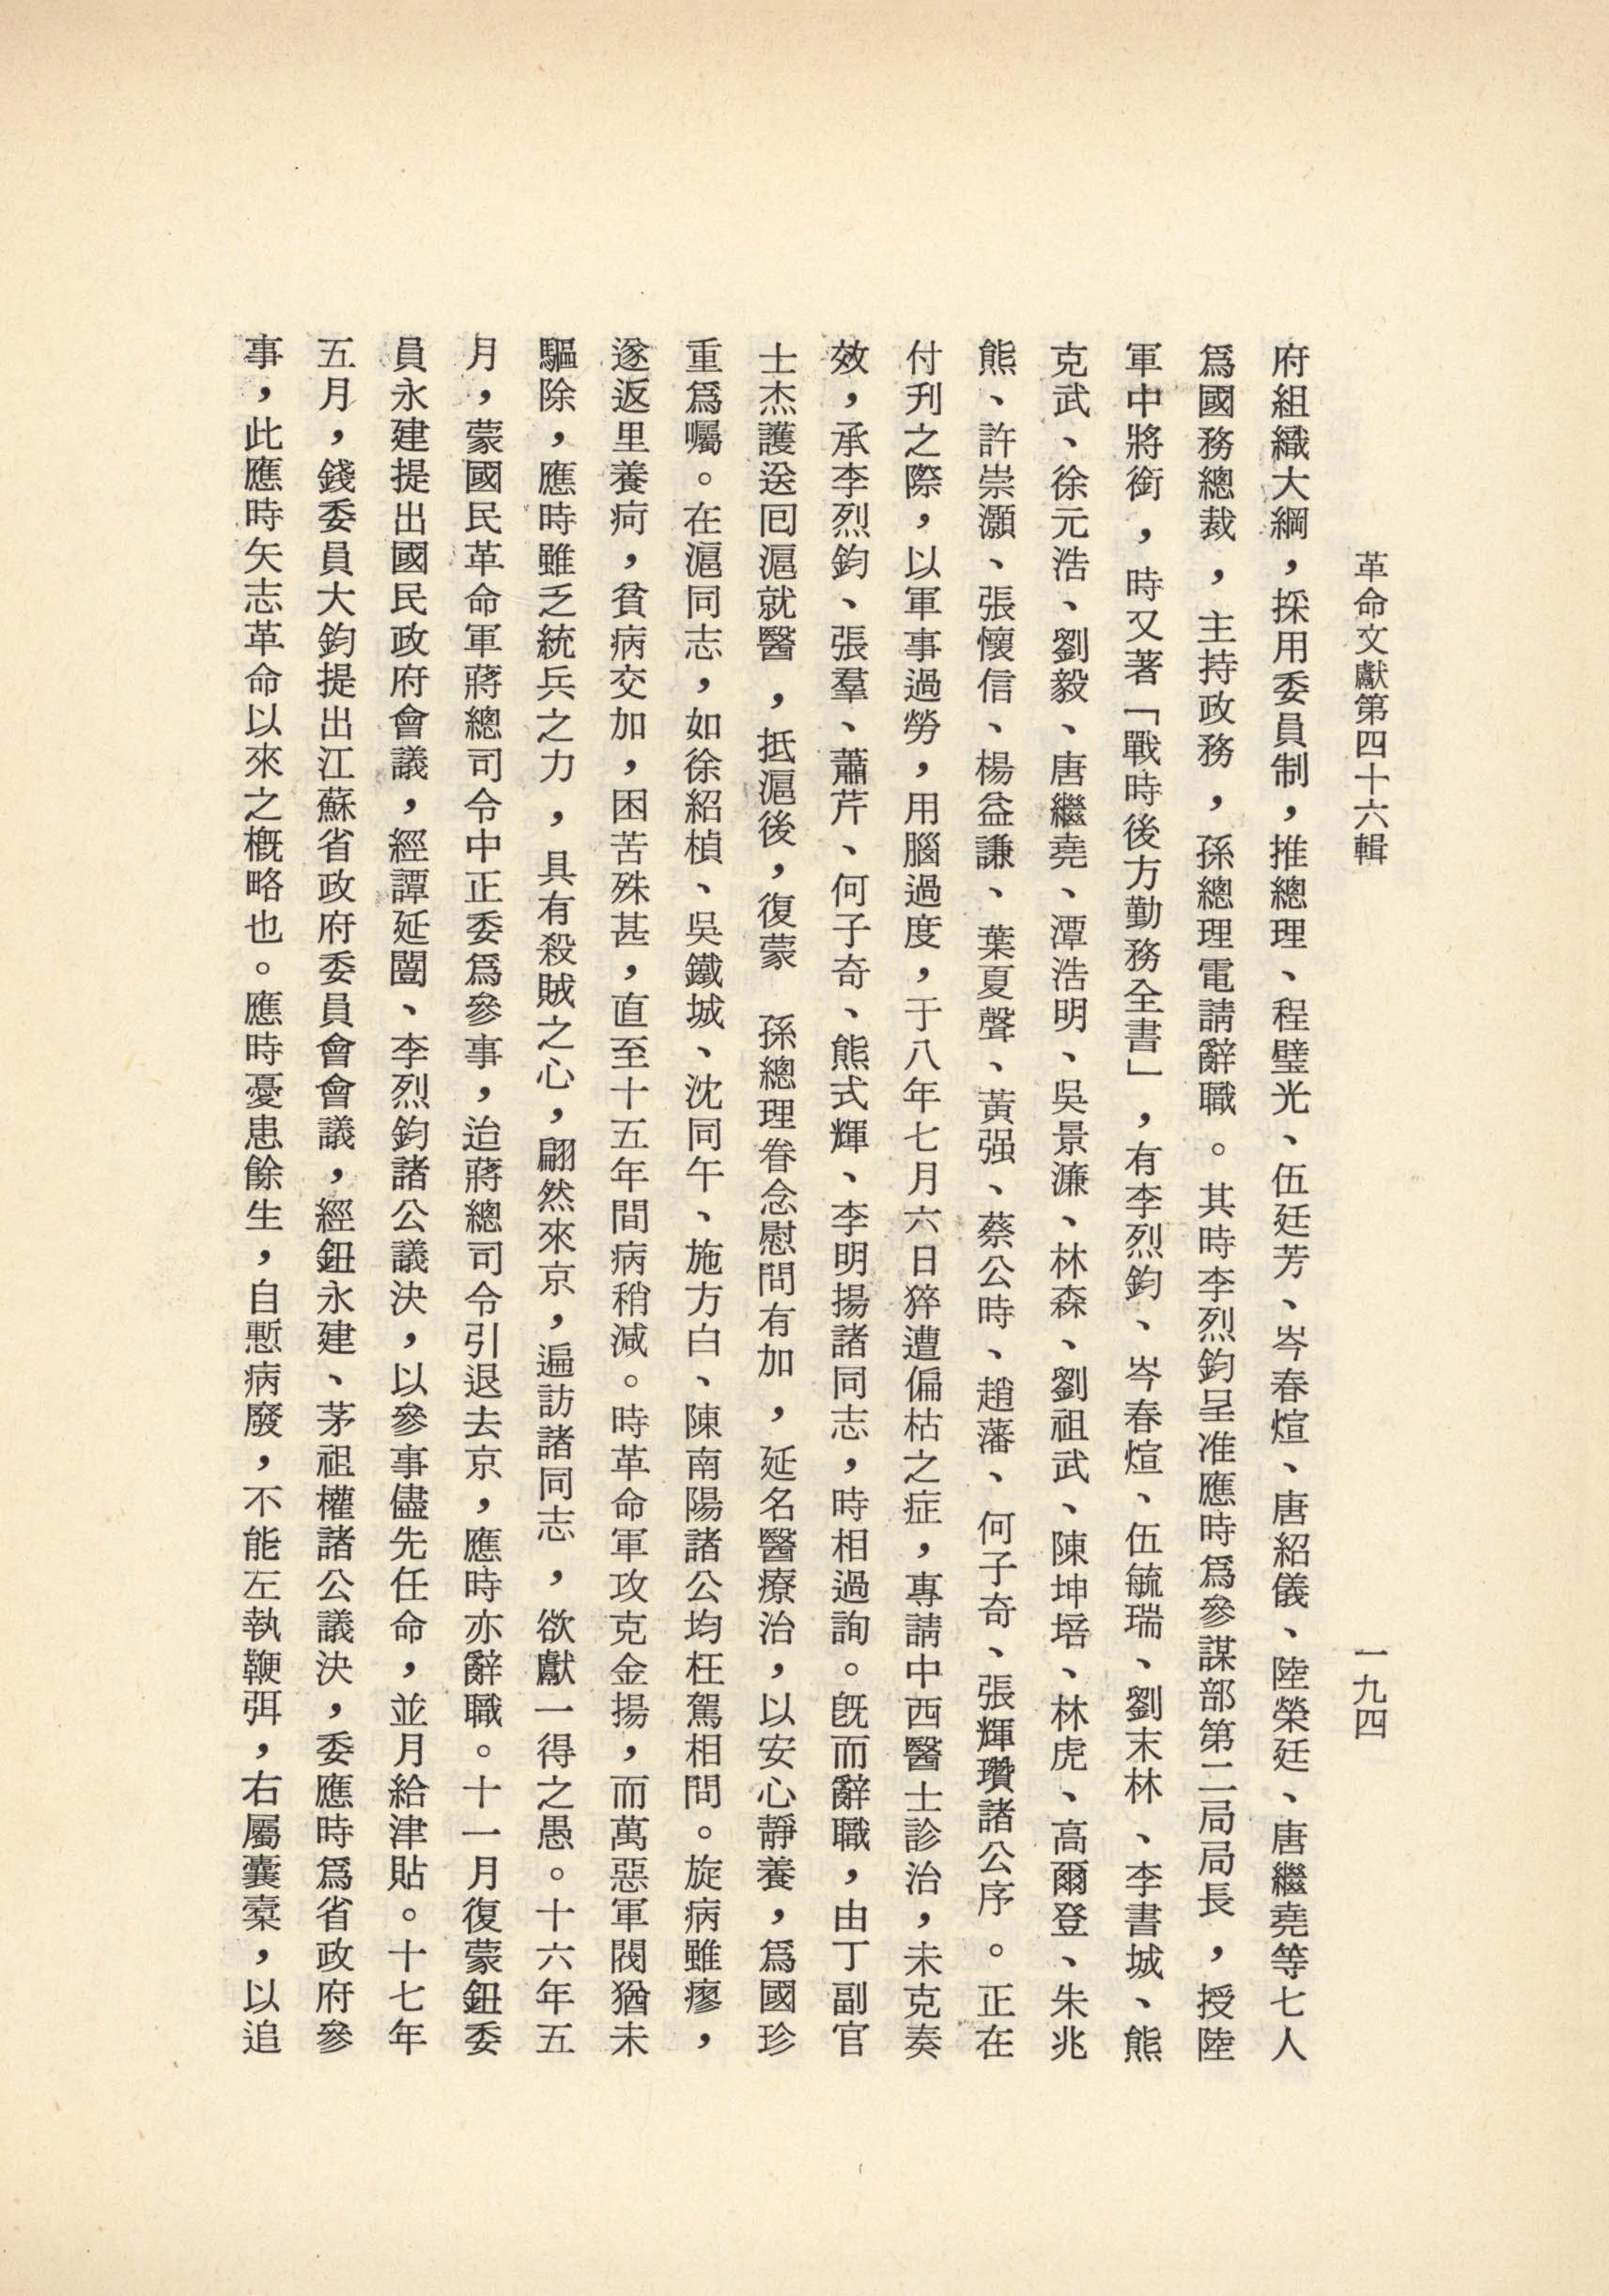 革命文獻第四十六輯
一九四
府組織大綱，採用委員制，推總理、程璧光、伍廷芳、岑春煊、唐紹儀、陸榮廷、唐繼堯等七人
爲國務總裁，主持政務，孫總理電請辭職。其時李烈鈞呈准應時爲參謀部第二局局長，授陸
軍中將銜，時又著「戰時後方勤務全書」，有李烈鈞、岑春煊、伍毓瑞、劉末林、李書城、熊
克武、徐元浩、劉毅、唐繼堯、潭浩明、吳景濂、林森、劉祖武、陳坤培、林虎、高爾登、朱兆
熊、許崇灝、張懷信、楊益謙、葉夏聲、黃强、蔡公時、趙藩、何子奇、張輝瓚諸公序。正在
付刋之際，以軍事過勞，用腦過度，于八年七月六日猝遭偏枯之症，專請中西醫士診治，未克奏
效，承李烈鈞、張羣、蕭芹、何子奇、熊式輝、李明揚諸同志，時相過詢。旣而辭職，由丁副官
士杰護送囘滬就醫，抵滬後，復蒙　孫總理眷念慰問有加，延名醫療治，以安心靜養，爲國珍
重爲囑。在滬同志，如徐紹楨、吳鐵城、沈同午、施方白、陳南陽諸公均枉駕相問。旋病雖瘳，
遂返里養疴，貧病交加，困苦殊甚，直至十五年間病稍減。時革命軍攻克金揚，而萬惡軍閥猶未
驅除，應時雖乏統兵之力，具有殺賊之心，翩然來京，遍訪諸同志，欲獻一得之愚。十六年五
月，蒙國民革命軍蔣總司令中正委爲參事，迨蔣總司令引退去京，應時亦辭職。十一月復蒙鈕委
員永建提出國民政府會議，經譚延闓、李烈鈞諸公議決，以參事儘先任命，並月給津貼。十七年
五月，錢委員大鈞提出江蘇省政府委員會會議，經鈕永建、茅祖權諸公議決，委應時爲省政府參
事，此應時矢志革命以來之概略也。應時憂患餘生，自慙病廢，不能左執鞭弭，右屬囊櫜，以追